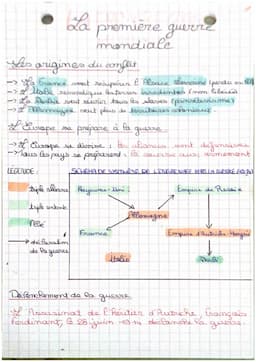 La première guerre
mondiale
Les origines du conflit
-> La France veut récupérer l'Alsace Lorraine (perdu en
-> L'Italie revendique les terres irredentes (non libérés
-> La Russie veut réunir tous les slaves (panslavisme)
-> L'Allemagne veut plus de territoires
L'Europe se prépare à la guerre
-> L'Europe se divise : les alliances sont défensives
-> Tous les pays se préparent : la course aux armements
LEGENDE : SCHEMA DE
Triple alliance Royaume-Uni Empire de Russie
triple entente
Allié Allemagne
-> déclaration de la guerre
France Empire d'Autriche-Hongrie
Italie Serbie
Déclenchement de la guerre
L'Assassinat de l'héritier d'Autriche, François
Ferdinant, le 28 juin 1914 déclenche la guerre.